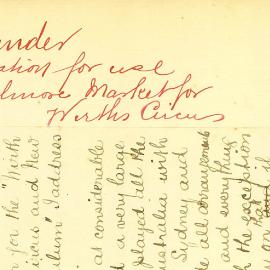 ender
ation for use
lmore Market for
Wirths Circus
n for the "Wirth
ircus and New
lium" I address
at considerable
d a very large
played all the
ustralia with
Sydney and
e all arrangements
and everything
h the exception
that